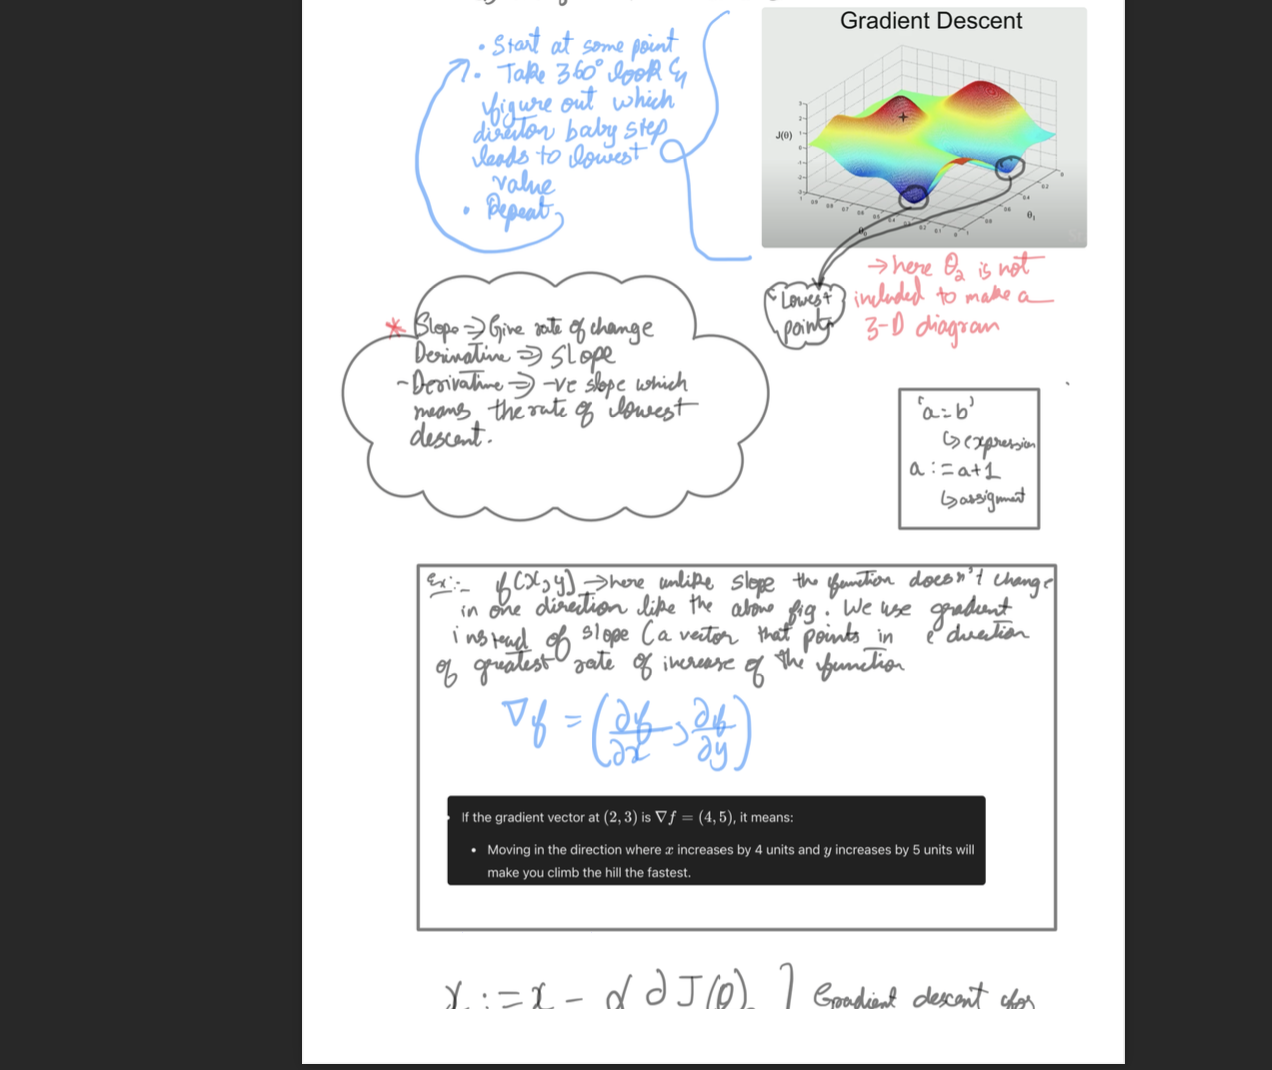 • Start at some point
• Take 360° look &
figure out which
direiton baby step
leads to lowest
value
• Repeat
Gradient Descent
J(θ)
θ₀
θ₁
→ here θ₂ is not
included to make a
3-D diagram
Lowest
points
* Slope => Give rate of change
Derivative => slope
- Derivative => -ve slope which
means the rate of lowest
descent.
'a = b'
↳ expression
a := a+1
↳ assigment
Ex:- f(x,y) → here unlike slope the function doesn't change
in one direction like the above fig. We use gradient
instead of slope (a vector that points in e direction
of greatest rate of increase of the function
∇f = (∂f/∂x, ∂f/∂y)
If the gradient vector at (2, 3) is ∇f = (4, 5), it means:
• Moving in the direction where x increases by 4 units and y increases by 5 units will
make you climb the hill the fastest.
x := x - α ∂J(θ) ] Gradient descent for